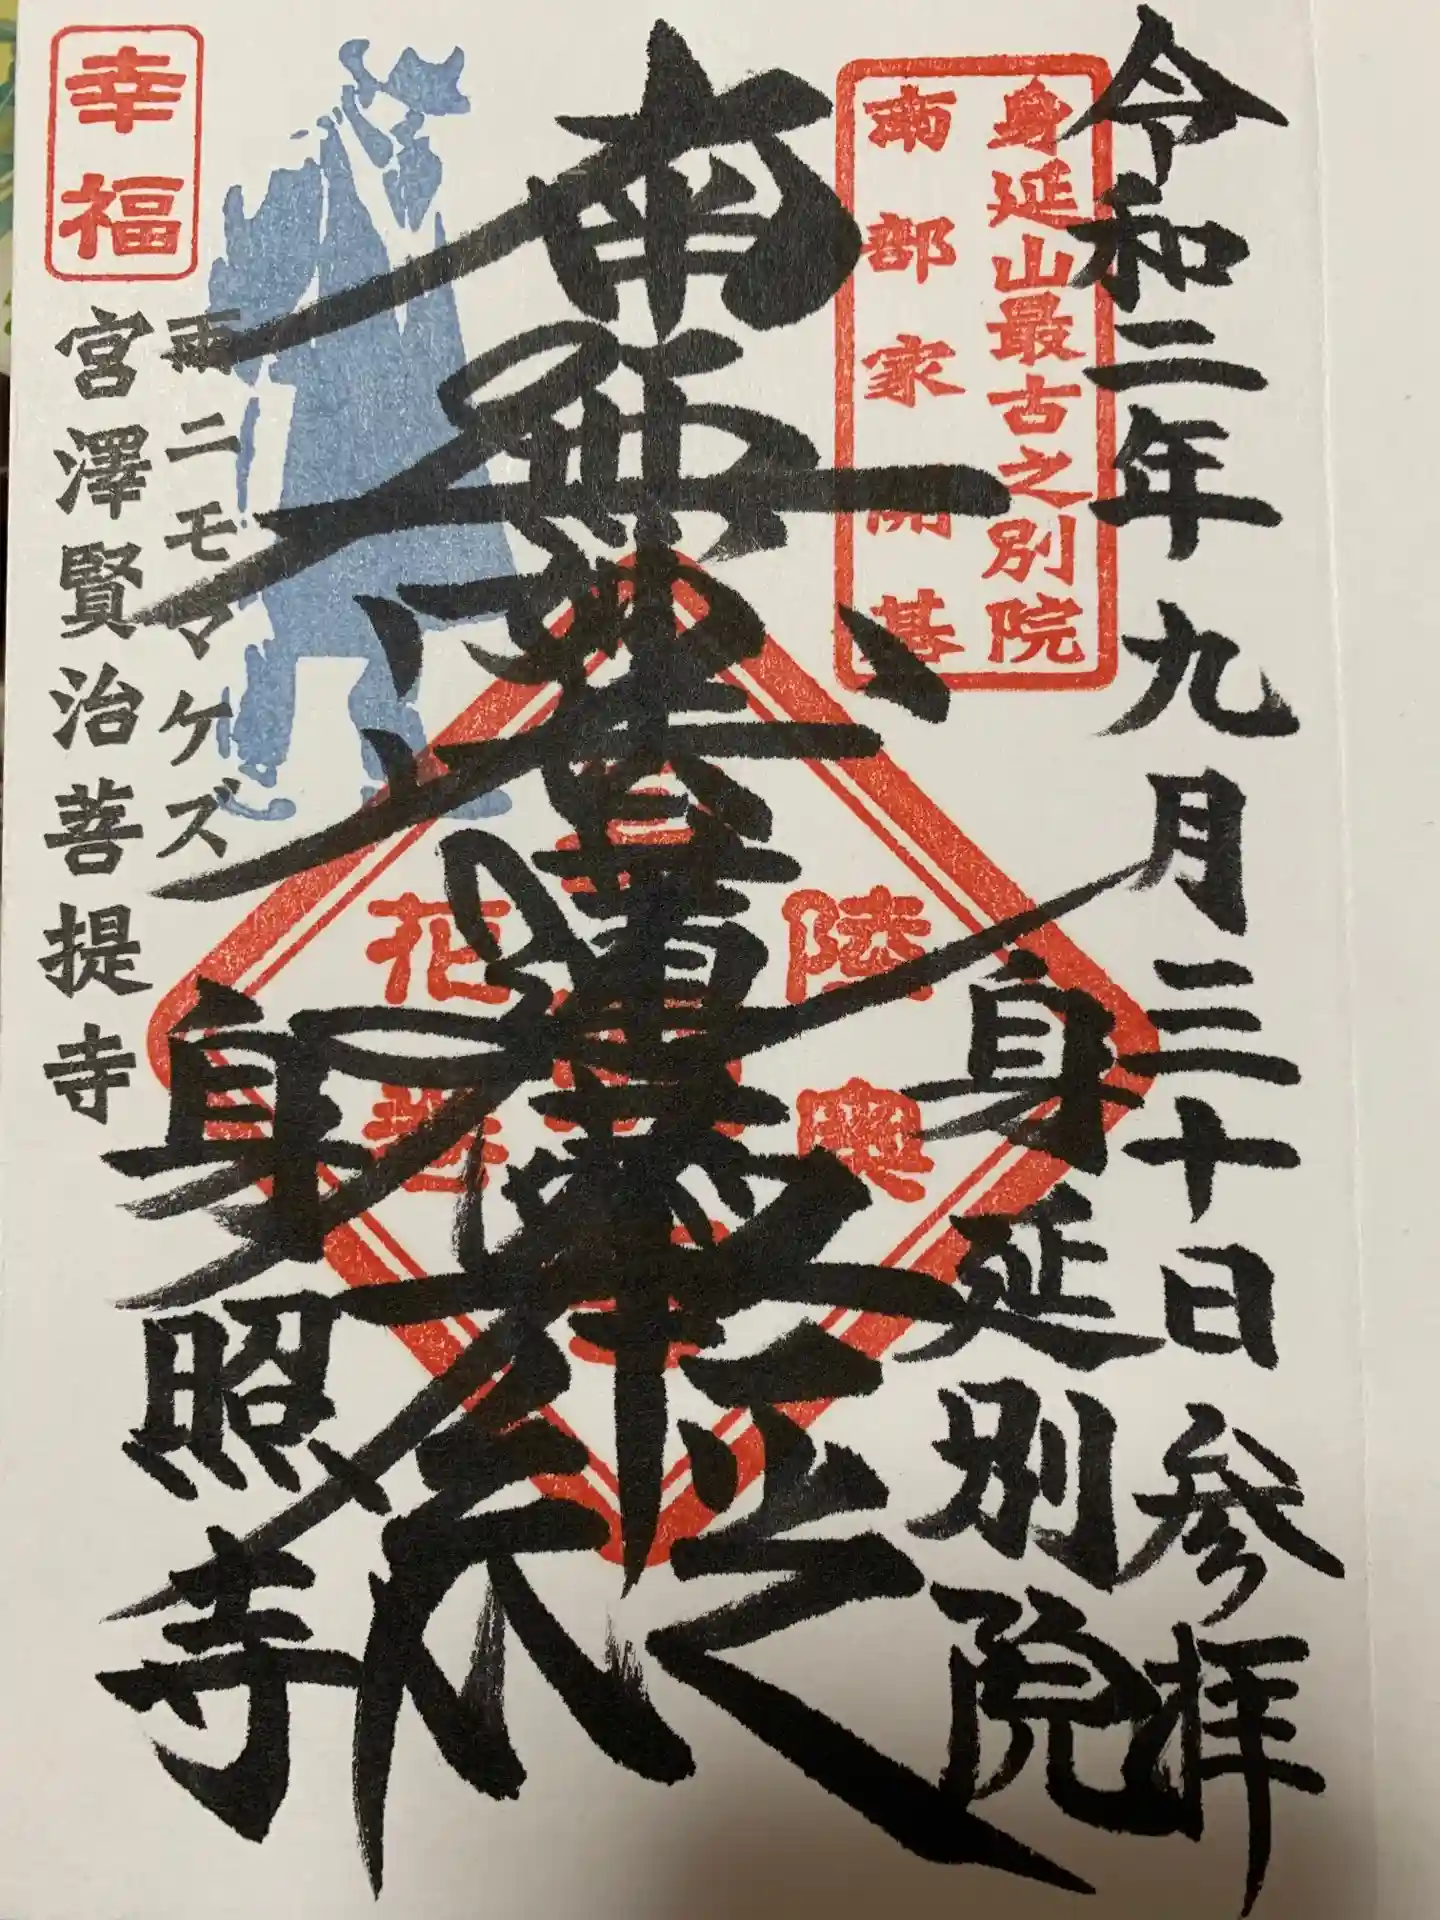 令和二年九月三十日参拝
身延別院
身延山最古之別院
南部家開基
南無妙法蓮華経
陸奥
花巻
身照寺
幸福
雨ニモマケズ
宮澤賢治菩提寺